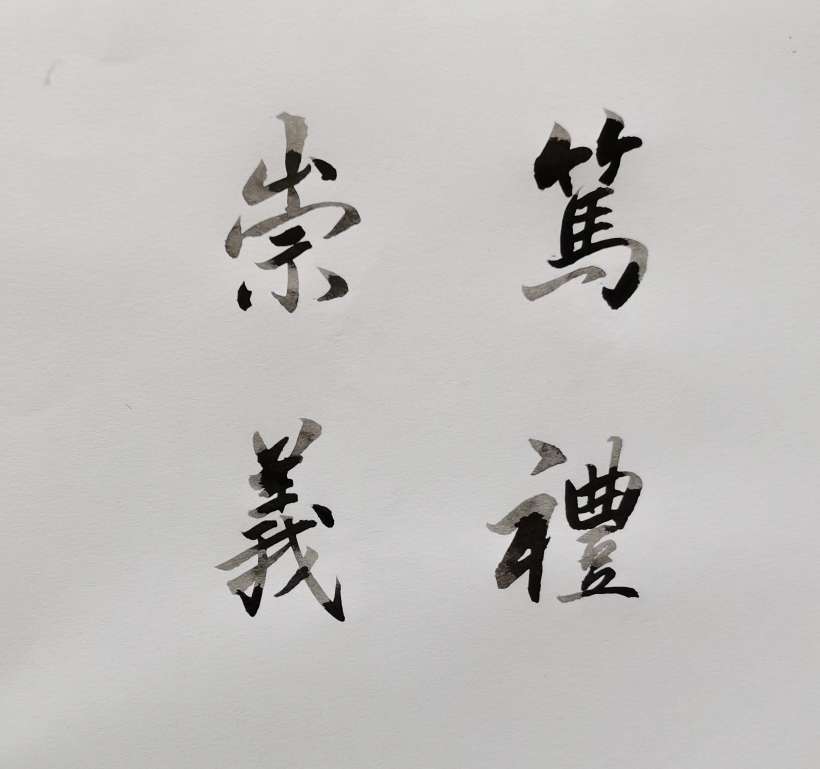 篤禮
崇義